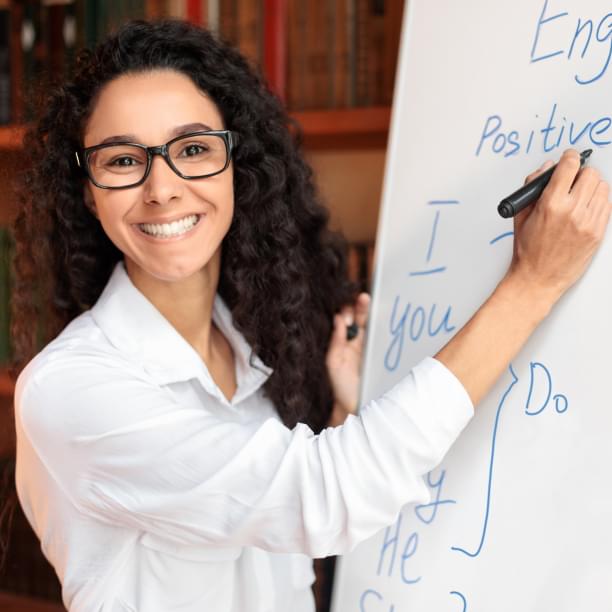 Eng
Positive
I
you
Do
y
He